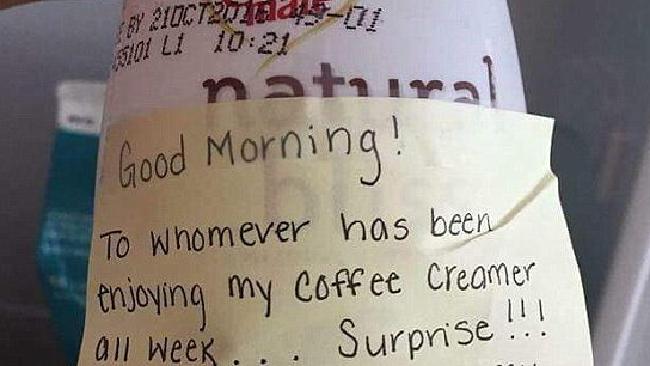 BY 21OCT2016 43-01
55101 L1 10:21
natural
bliss
Good Morning!
To whomever has been
enjoying my coffee creamer
all week. . . Surprise!!!